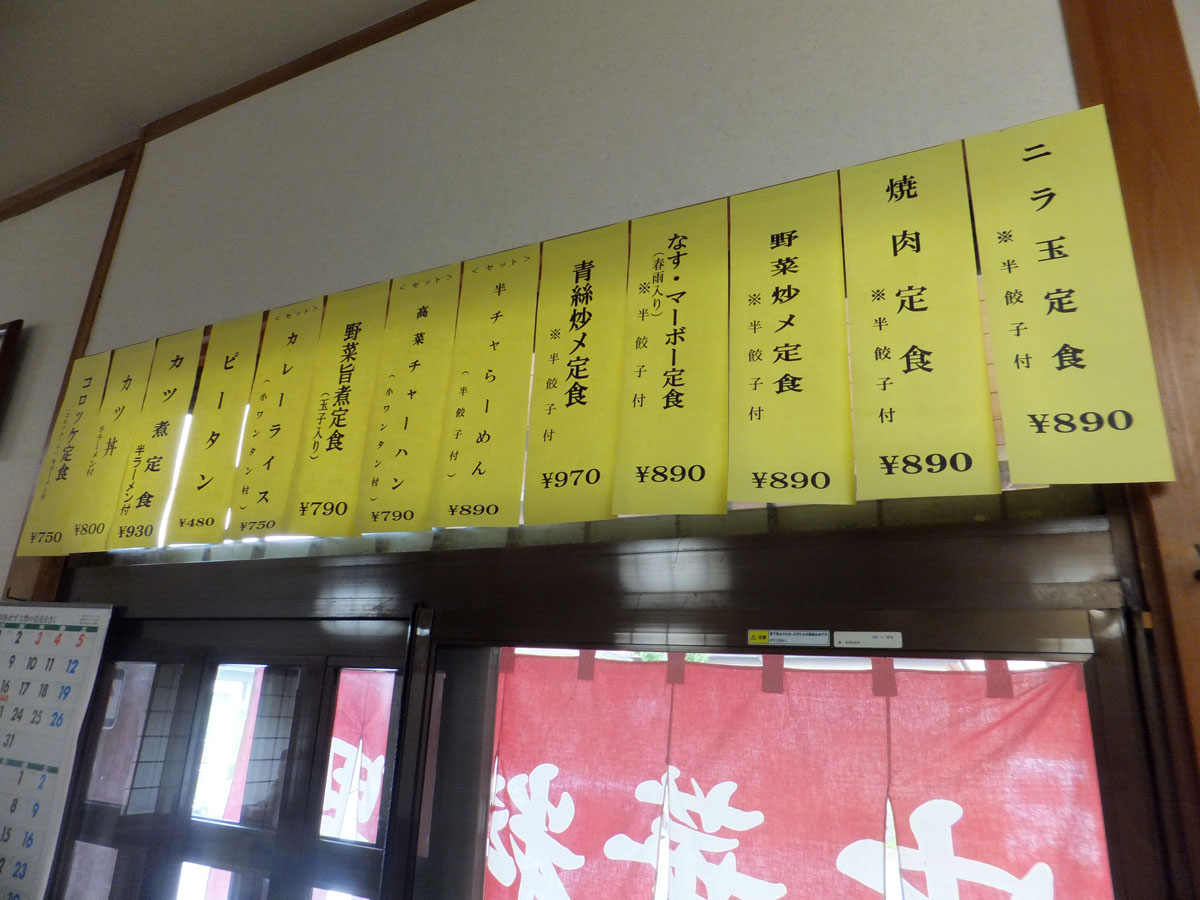 ニラ玉定食
※半餃子付
¥890
焼肉定食
※半餃子付
¥890
野菜炒メ定食
※半餃子付
¥890
なす・マーボー定食
(春雨入り)
※半餃子付
¥890
青絲炒メ定食
※半餃子付
¥970
<セット>
半チャらーめん
(半餃子付)
¥890
<セット>
高菜チャーハン
(小ワンタン付)
¥790
野菜旨煮定食
(玉子入り)
¥790
<セット>
カレーライス
(小ワンタン付)
¥750
ピータン
¥480
カツ煮定食
半ラーメン付
¥930
カツ丼
半ラーメン付
¥800
コロッケ定食
¥750
2 3 4 5
9 10 11 12
16 17 18 19
24 25 26
31
1 2
8 9
15 16
22 23
30
注意